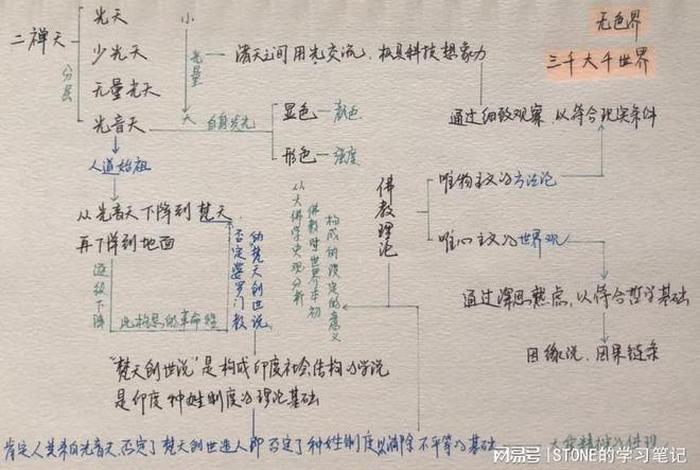 无色界
三千大千世界
二禅天
分层
光天
少光天
无量光天
光音天
小
光量
大
诸天之间用光交流，极具科技想象力
自身发光
显色—颜色
形色—强度
通过细致观察，以符合现实条件
人道始祖
从光音天下降到梵天
再下降到地面
逐级下降
此构思的革命性
否定婆罗门教
的梵天创世说
从大佛学史观分析
佛教对世界本初
构成的设定的意义
佛教理论
唯物主义为方法论
唯心主义为世界观
通过深思熟虑，以符合哲学基础
因缘说、因果链条
“梵天创世说”是构成印度社会结构的学说
是印度种姓制度的理论基础
肯定人类来自光音天，否定了梵天创世造人，即否定了种姓制度以消除不平等的基础
大无畏精神的体现
网易号|STONE的学习笔记